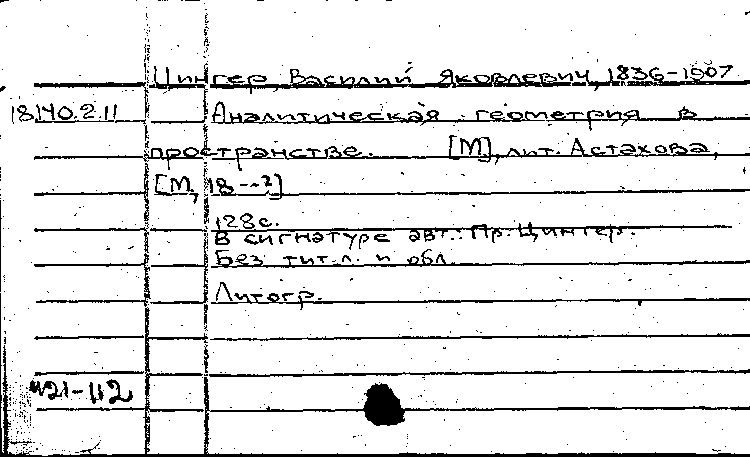 Цингер, Василий Яковлевич, 1836-1907
18.140.2.11 Аналитическая геометрия в
пространстве. [М], лит. Астахова,
[М, 18--?]
128с.
В сигнатуре авт.: Пр. Цингер.
Без тит.л. и обл.
Литогр.
21-112